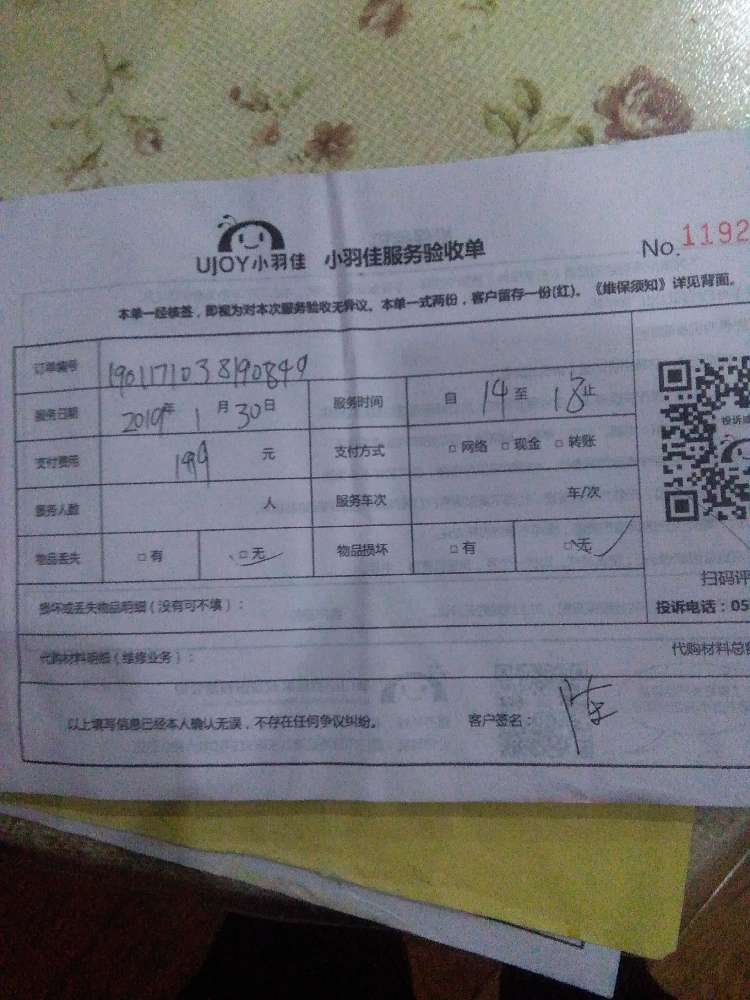 UJOY小羽佳 小羽佳服务验收单 No.1192
本单一经核签，即视为对本次服务验收无异议。本单一式两份，客户留存一份(红)。《维保须知》详见背面。
订单编号 1901171038190849
服务日期 2019年 1月 30日 服务时间 自 14 至 18 止
支付费用 199 元 支付方式 □网络 □现金 □转账
服务人数 人 服务车次 车/次
物品丢失 □有 □无 物品损坏 □有 □无
投诉
扫码评
损坏或丢失物品明细（没有可不填）： 投诉电话：05
代购材料明细（维修业务）： 代购材料总
以上填写信息已经本人确认无误，不存在任何争议纠纷。 客户签名： 陈